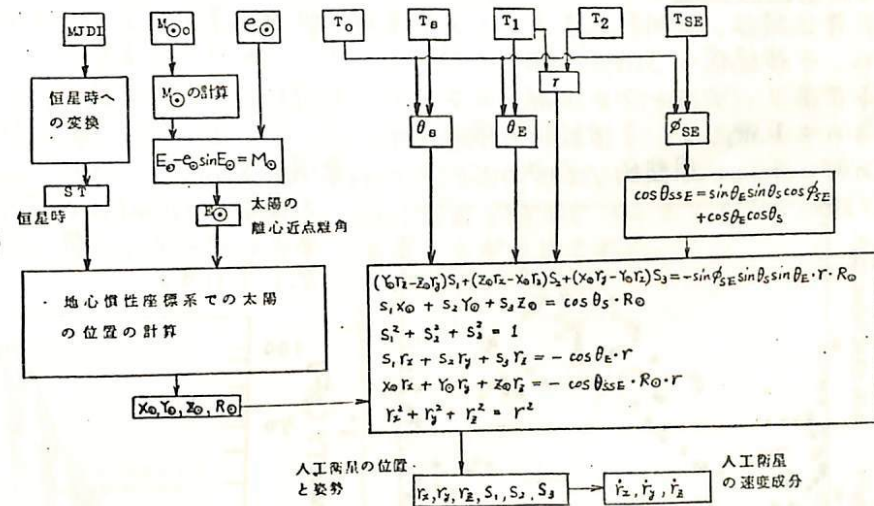 MJDI
M⊙₀
e⊙
T₀
Tₛ
T₁
T₂
T_SE
恒星時へ
の変換
M⊙の計算
r
θₛ
θ_E
φ_SE
E⊙-e⊙sinE⊙=M⊙
ST
恒星時
E⊙
太陽の
離心近点離角
cosθ_SSE=sinθ_E sinθ_S cosφ_SE
+cosθ_E cosθ_S
地心慣性座標系での太陽
の位置の計算
(Y⊙r_z-Z⊙r_y)S₁+(Z⊙r_x-X⊙r_z)S₂+(X⊙r_y-Y⊙r_x)S₃=-sinφ_SE sinθ_S sinθ_E・r・R⊙
S₁X⊙+S₂Y⊙+S₃Z⊙=cosθ_S・R⊙
S₁²+S₂²+S₃²=1
S₁r_x+S₂r_y+S₃r_z=-cosθ_E・r
X⊙r_x+Y⊙r_y+Z⊙r_z=-cosθ_SSE・R⊙・r
r_x²+r_y²+r_z²=r²
X⊙,Y⊙,Z⊙,R⊙
人工衛星の位置
と姿勢
r_x,r_y,r_z,S₁,S₂,S₃
人工衛星
の速変成分
ṙ_x,ṙ_y,ṙ_z